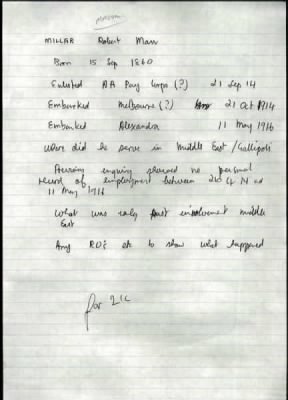 MILLAR Robert Marr
Born 15 Sep 1860
Enlisted AA Pay Corps (?) 21 Sep 14
Embarked Melbourne (?) 21 Oct 1914
Embarked Alexandra 11 May 1916
Where did he serve in Middle East / Gallipoli
enquiry showed no personal
record of employment between 21 Oct 14 and
11 May 1916
What was involvement middle
East
Any ROE etc to show what happened
for